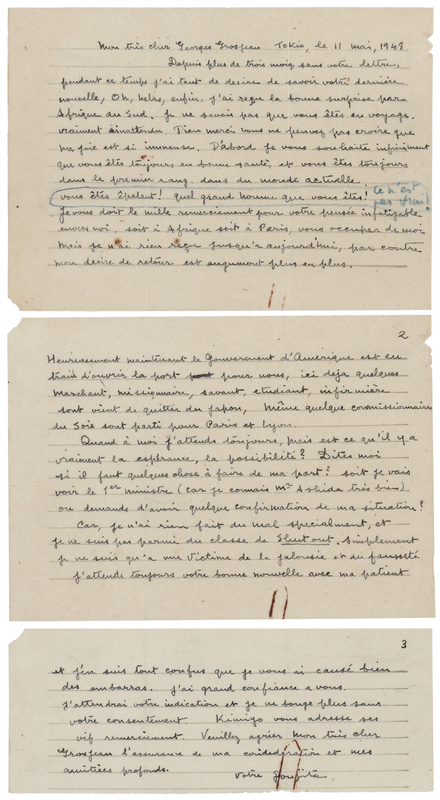 Mon très cher Georges Grosjean Tokio, le 11 mai, 1948
Depuis plus de trois mois, sans votre lettre,
pendant ce temps j'ai tant de desire de savoir votre dernière
nouvelle, Oh, helas, enfin, j'ai reçu la bonne surprise par
Afrique du Sud. Je ne savais pas que vous êtes en voyage.
vraiment inattendu. Dieu merci vous ne pouvez pas croire que
ma foie est si immense. D'abord je vous souhaite infiniment
que vous êtes toujours en bonne santé, et vous êtes toujours
dans le premier rang, dans du monde actuelle.
vous êtes épatant! quel grand homme que vous êtes!
Ce n'est
pas vrai!
Je vous doit le mille remerciement pour votre pensée infatigable
envers moi, soit à Afrique soit à Paris, vous occuper de moi
Mais je n'ai rien reçu jusqu'à aujourd'hui, par contre
mon desire de retour est augmont plus en plus.
2
Heureusement maintenant le Gouvernement d'Amerique est en
train d'ouvrir la port pour nous, ici deja quelques
Marchant, missionnaire, savant, etudiant, infirmière
sont vient de quitter du Japon, Même quelque commissionnaires
du Soie sont parti pour Paris et Lyon.
Quand à moi j'attends toujours, Mais est ce qu'il y a
vraiment la espérance, la possibilité? Dites moi
si il faut quelques chose à faire de ma part? soit je vais
voir le 1er ministre (car je connais Mr Ashida très bien)
ou demande d'avoir quelque confirmation de ma situation?
Car, je n'ai rien fait du mal specialment, et
je ne suis pas parmi du classe de Shut out. Simplement
Je ne suis qu'a une Victime de la jalousie et du fausseté
J'attends toujours votre bonne nouvelle avec ma patient
3
et j'en suis tout confus que je vous ai causé bien
des embarras. J'ai grand confiance a vous.
J'attendrai votre indication et je ne bouge plus sans
votre consentement Kimiyo vous adresse ses
vif remerciement. Veuillez agréer Mon très cher
Grosjean l'assurance de ma consideration et mes
amitiées profonds.
Votre Foujita